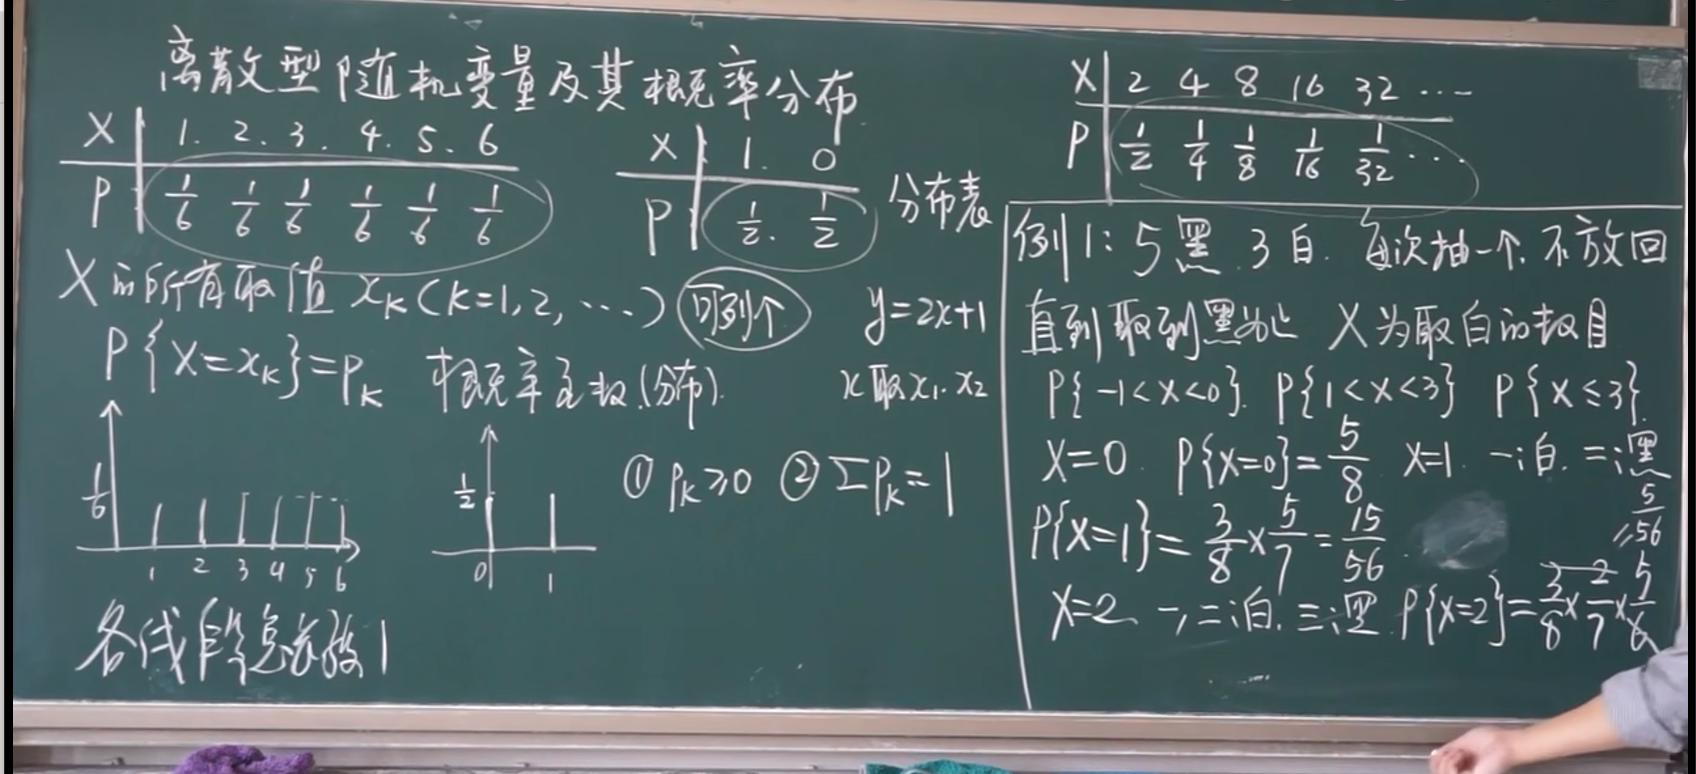 离散型随机变量及其概率分布
X 1. 2. 3. 4. 5. 6
P 1/6 1/6 1/6 1/6 1/6 1/6
X 1. 0
P 1/2. 1/2
分布表
X的所有取值 xₖ(k=1,2,⋯) 可列个
P{X=xₖ}=pₖ 概率函数.(分布).
y=2x+1
x取x₁.x₂
1/6
1 2 3 4 5 6
1/2
0 1
① pₖ≥0 ② Σpₖ=1
各线段总长为1
X 2 4 8 16 32 ⋯
P 1/2 1/4 1/8 1/16 1/32 ⋯
例1: 5黑.3白. 每次抽一个.不放回
直到取到黑为止 X为取白的数目
P{-1<X<0}. P{1<X<3} P{X≤3}.
X=0. P{X=0}=5/8 X=1. 一:白. 二:黑
P{X=1}=3/8×5/7=15/56.
X=2 一,二:白. 三:黑. P{X=2}=3/8×2/7×5/6
=5/56